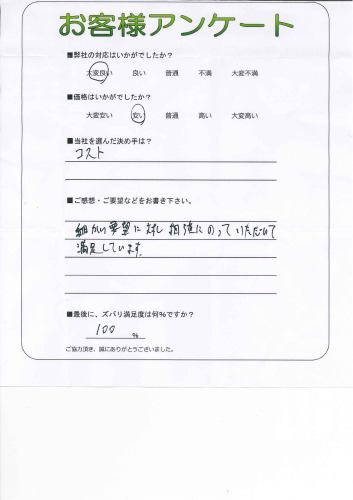 お客様アンケート
■弊社の対応はいかがでしたか？
大変良い 良い 普通 不満 大変不満
■価格はいかがでしたか？
大変安い 安い 普通 高い 大変高い
■当社を選んだ決め手は？
コスト
■ご感想・ご要望などをお書き下さい。
細かい要望に対し相談にのっていただいて
満足しています。
■最後に、ズバリ満足度は何％ですか？
100 %
ご協力頂き、誠にありがとうございました。